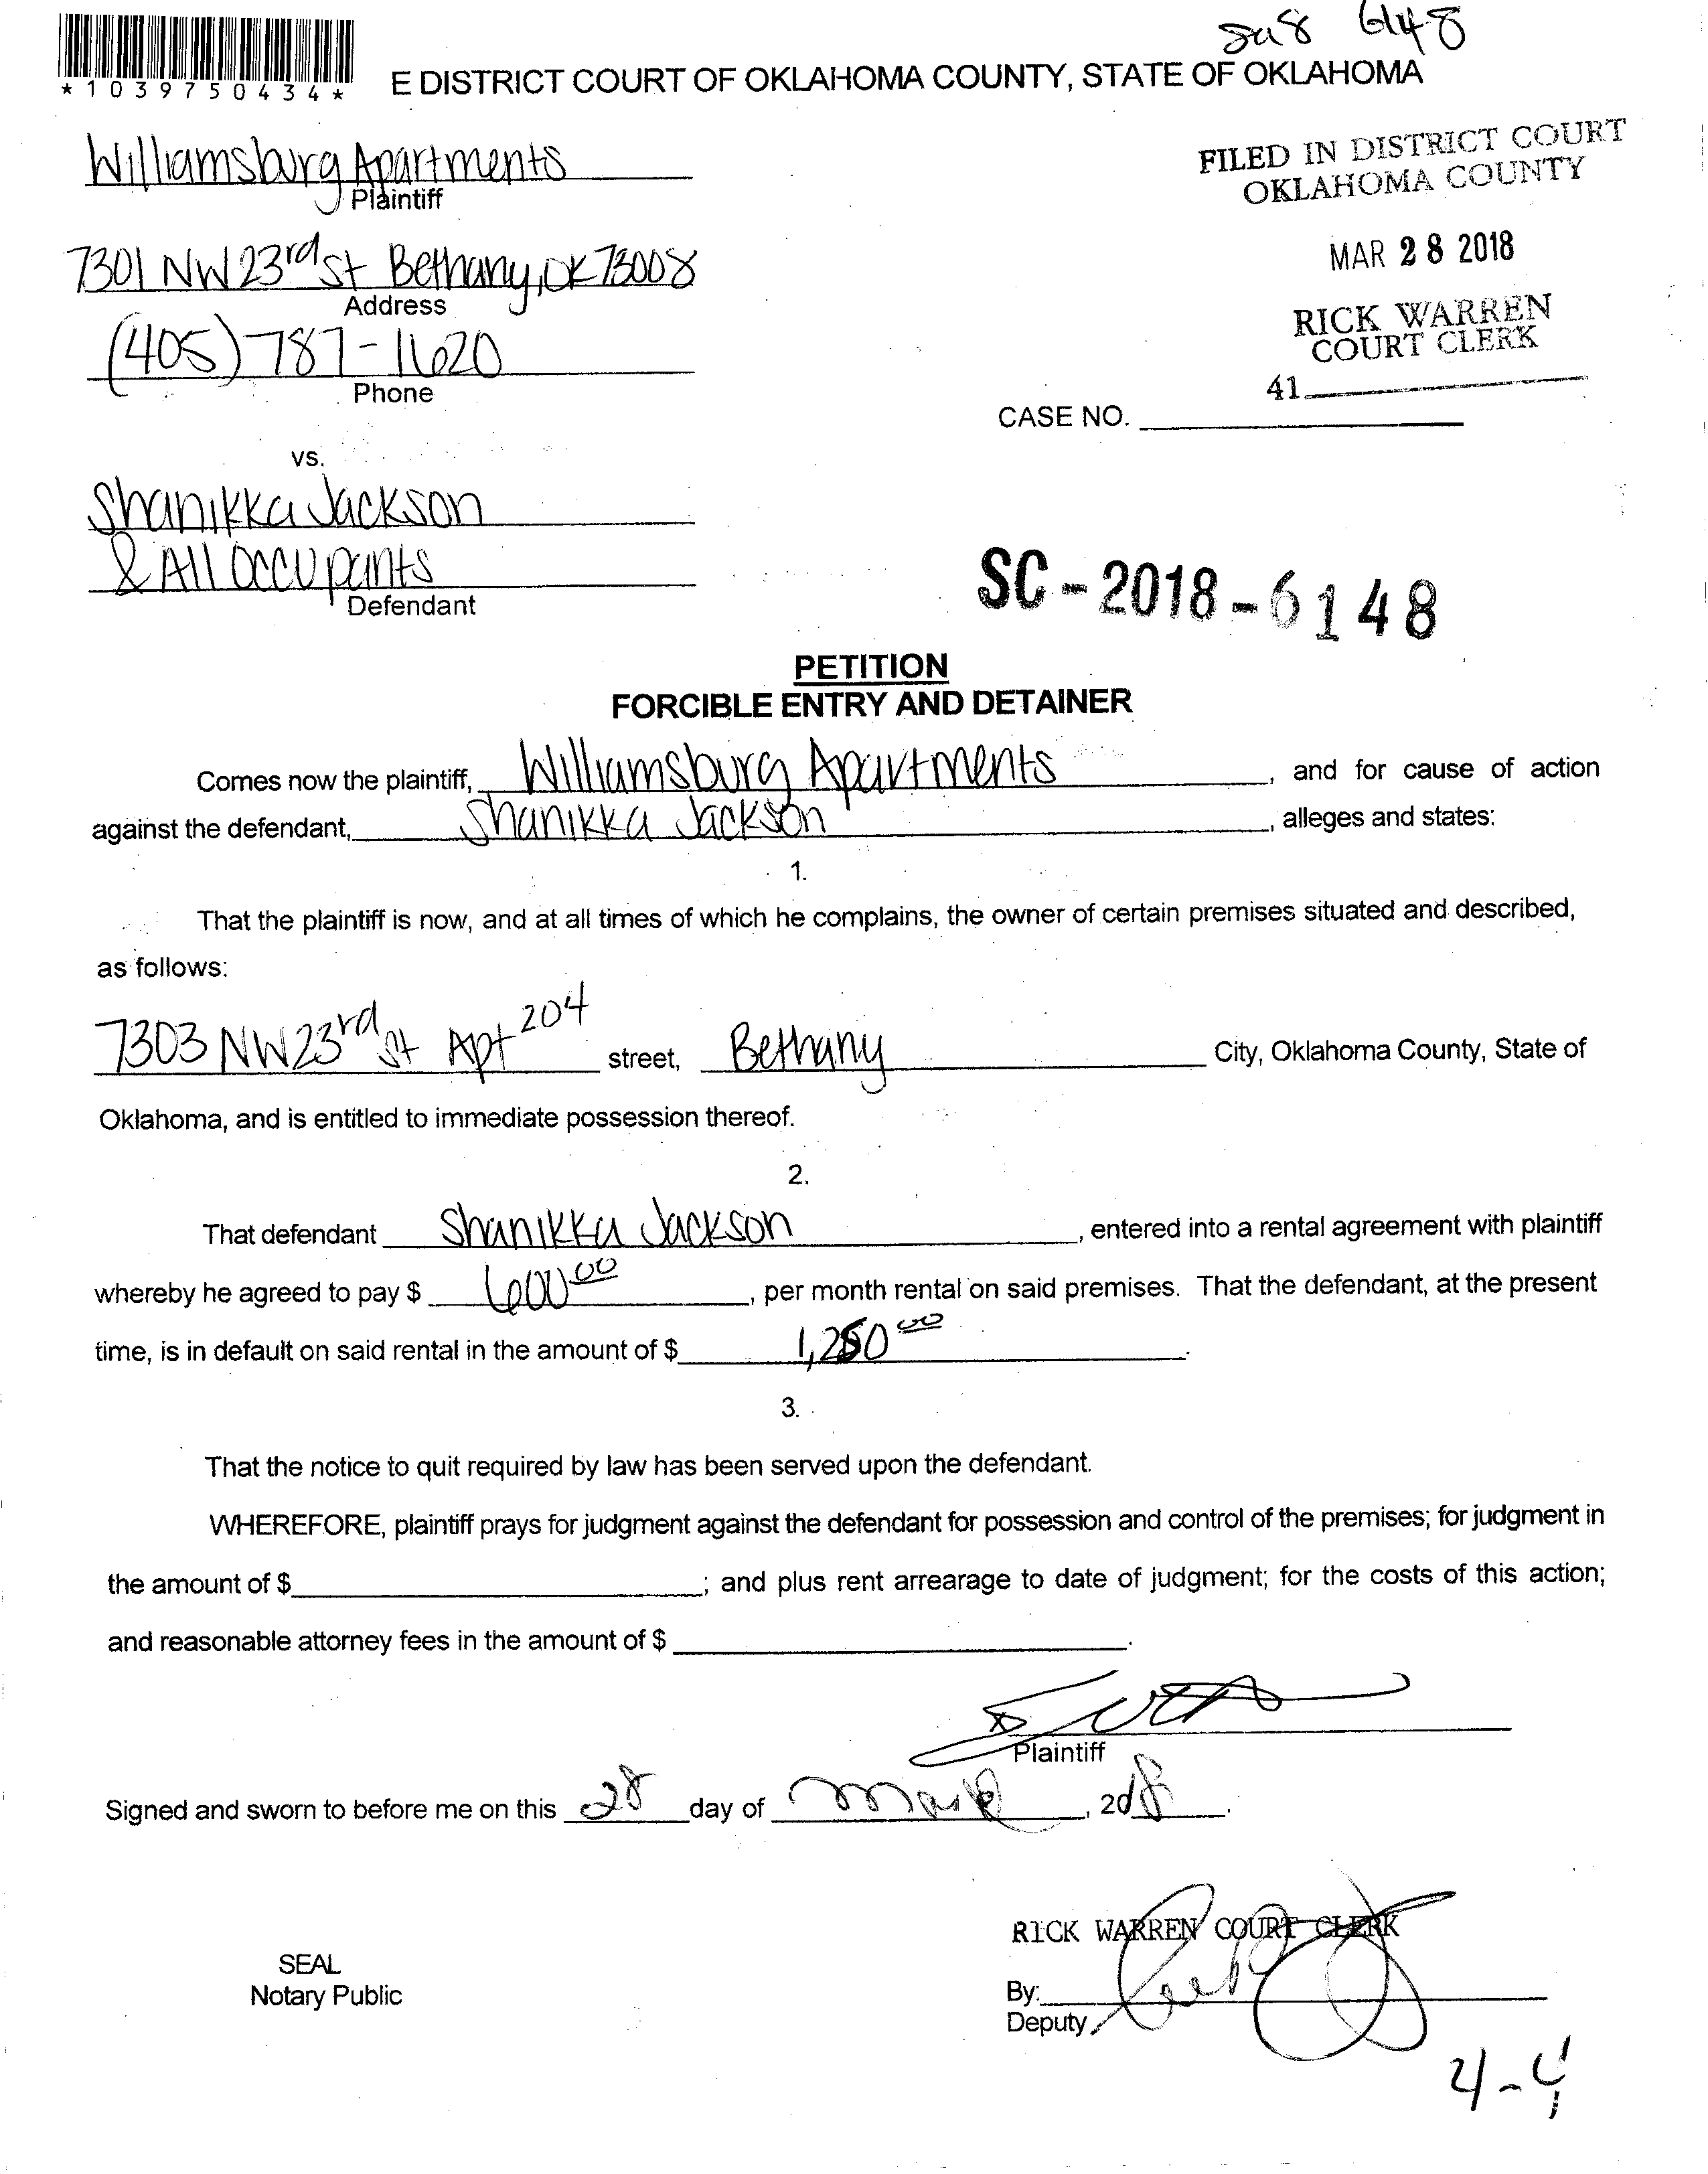 6148
*1039750434*
E DISTRICT COURT OF OKLAHOMA COUNTY, STATE OF OKLAHOMA
Williamsburg Apartments
Plaintiff
7301 NW 23rd St Bethany, OK 73008
Address
(405) 787-1620
Phone
FILED IN DISTRICT COURT
OKLAHOMA COUNTY
MAR 28 2018
RICK WARREN
COURT CLERK
41
CASE NO.
vs.
Shanikka Jackson
& All Occupants
Defendant
SC-2018-6148
PETITION
FORCIBLE ENTRY AND DETAINER
Comes now the plaintiff, Williamsburg Apartments, and for cause of action
against the defendant, Shanikka Jackson, alleges and states:
1.
That the plaintiff is now, and at all times of which he complains, the owner of certain premises situated and described,
as follows:
7303 NW 23rd St Apt 204 street, Bethany City, Oklahoma County, State of
Oklahoma, and is entitled to immediate possession thereof.
2.
That defendant Shanikka Jackson, entered into a rental agreement with plaintiff
whereby he agreed to pay $ 600.00, per month rental on said premises. That the defendant, at the present
time, is in default on said rental in the amount of $ 1,250.00.
3.
That the notice to quit required by law has been served upon the defendant.
WHEREFORE, plaintiff prays for judgment against the defendant for possession and control of the premises; for judgment in
the amount of $; and plus rent arrearage to date of judgment; for the costs of this action;
and reasonable attorney fees in the amount of $.
Plaintiff
Signed and sworn to before me on this 28 day of March, 2018.
RICK WARREN COURT CLERK
SEAL
Notary Public
By:
Deputy
4-4